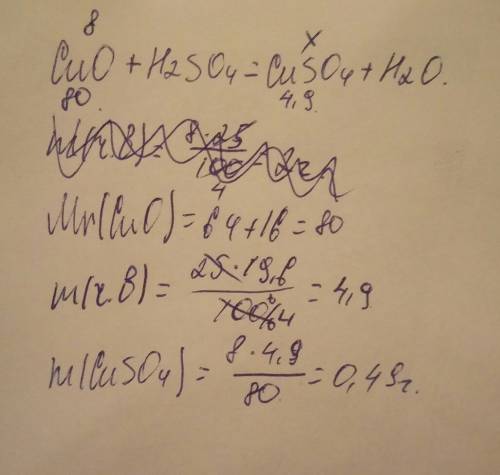 8 x
CuO + H2SO4 = CuSO4 + H2O.
80 4,9
Mr(CuO) = 64+16 = 80
m(r.B) = 25·19,6 / 100% 4 = 4,9
m(CuSO4) = 8·4,9 / 80 = 0,49г.